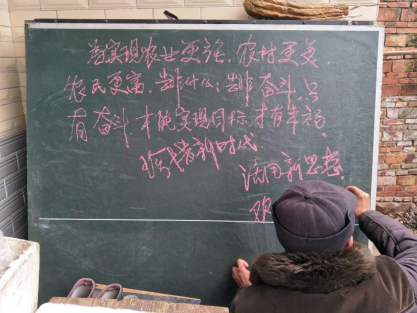 为实现农业更强，农村更美，
农民更富，靠什么：靠奋斗，只
有奋斗，才能实现目标，才有幸福。
新时代
活用新思想
欢